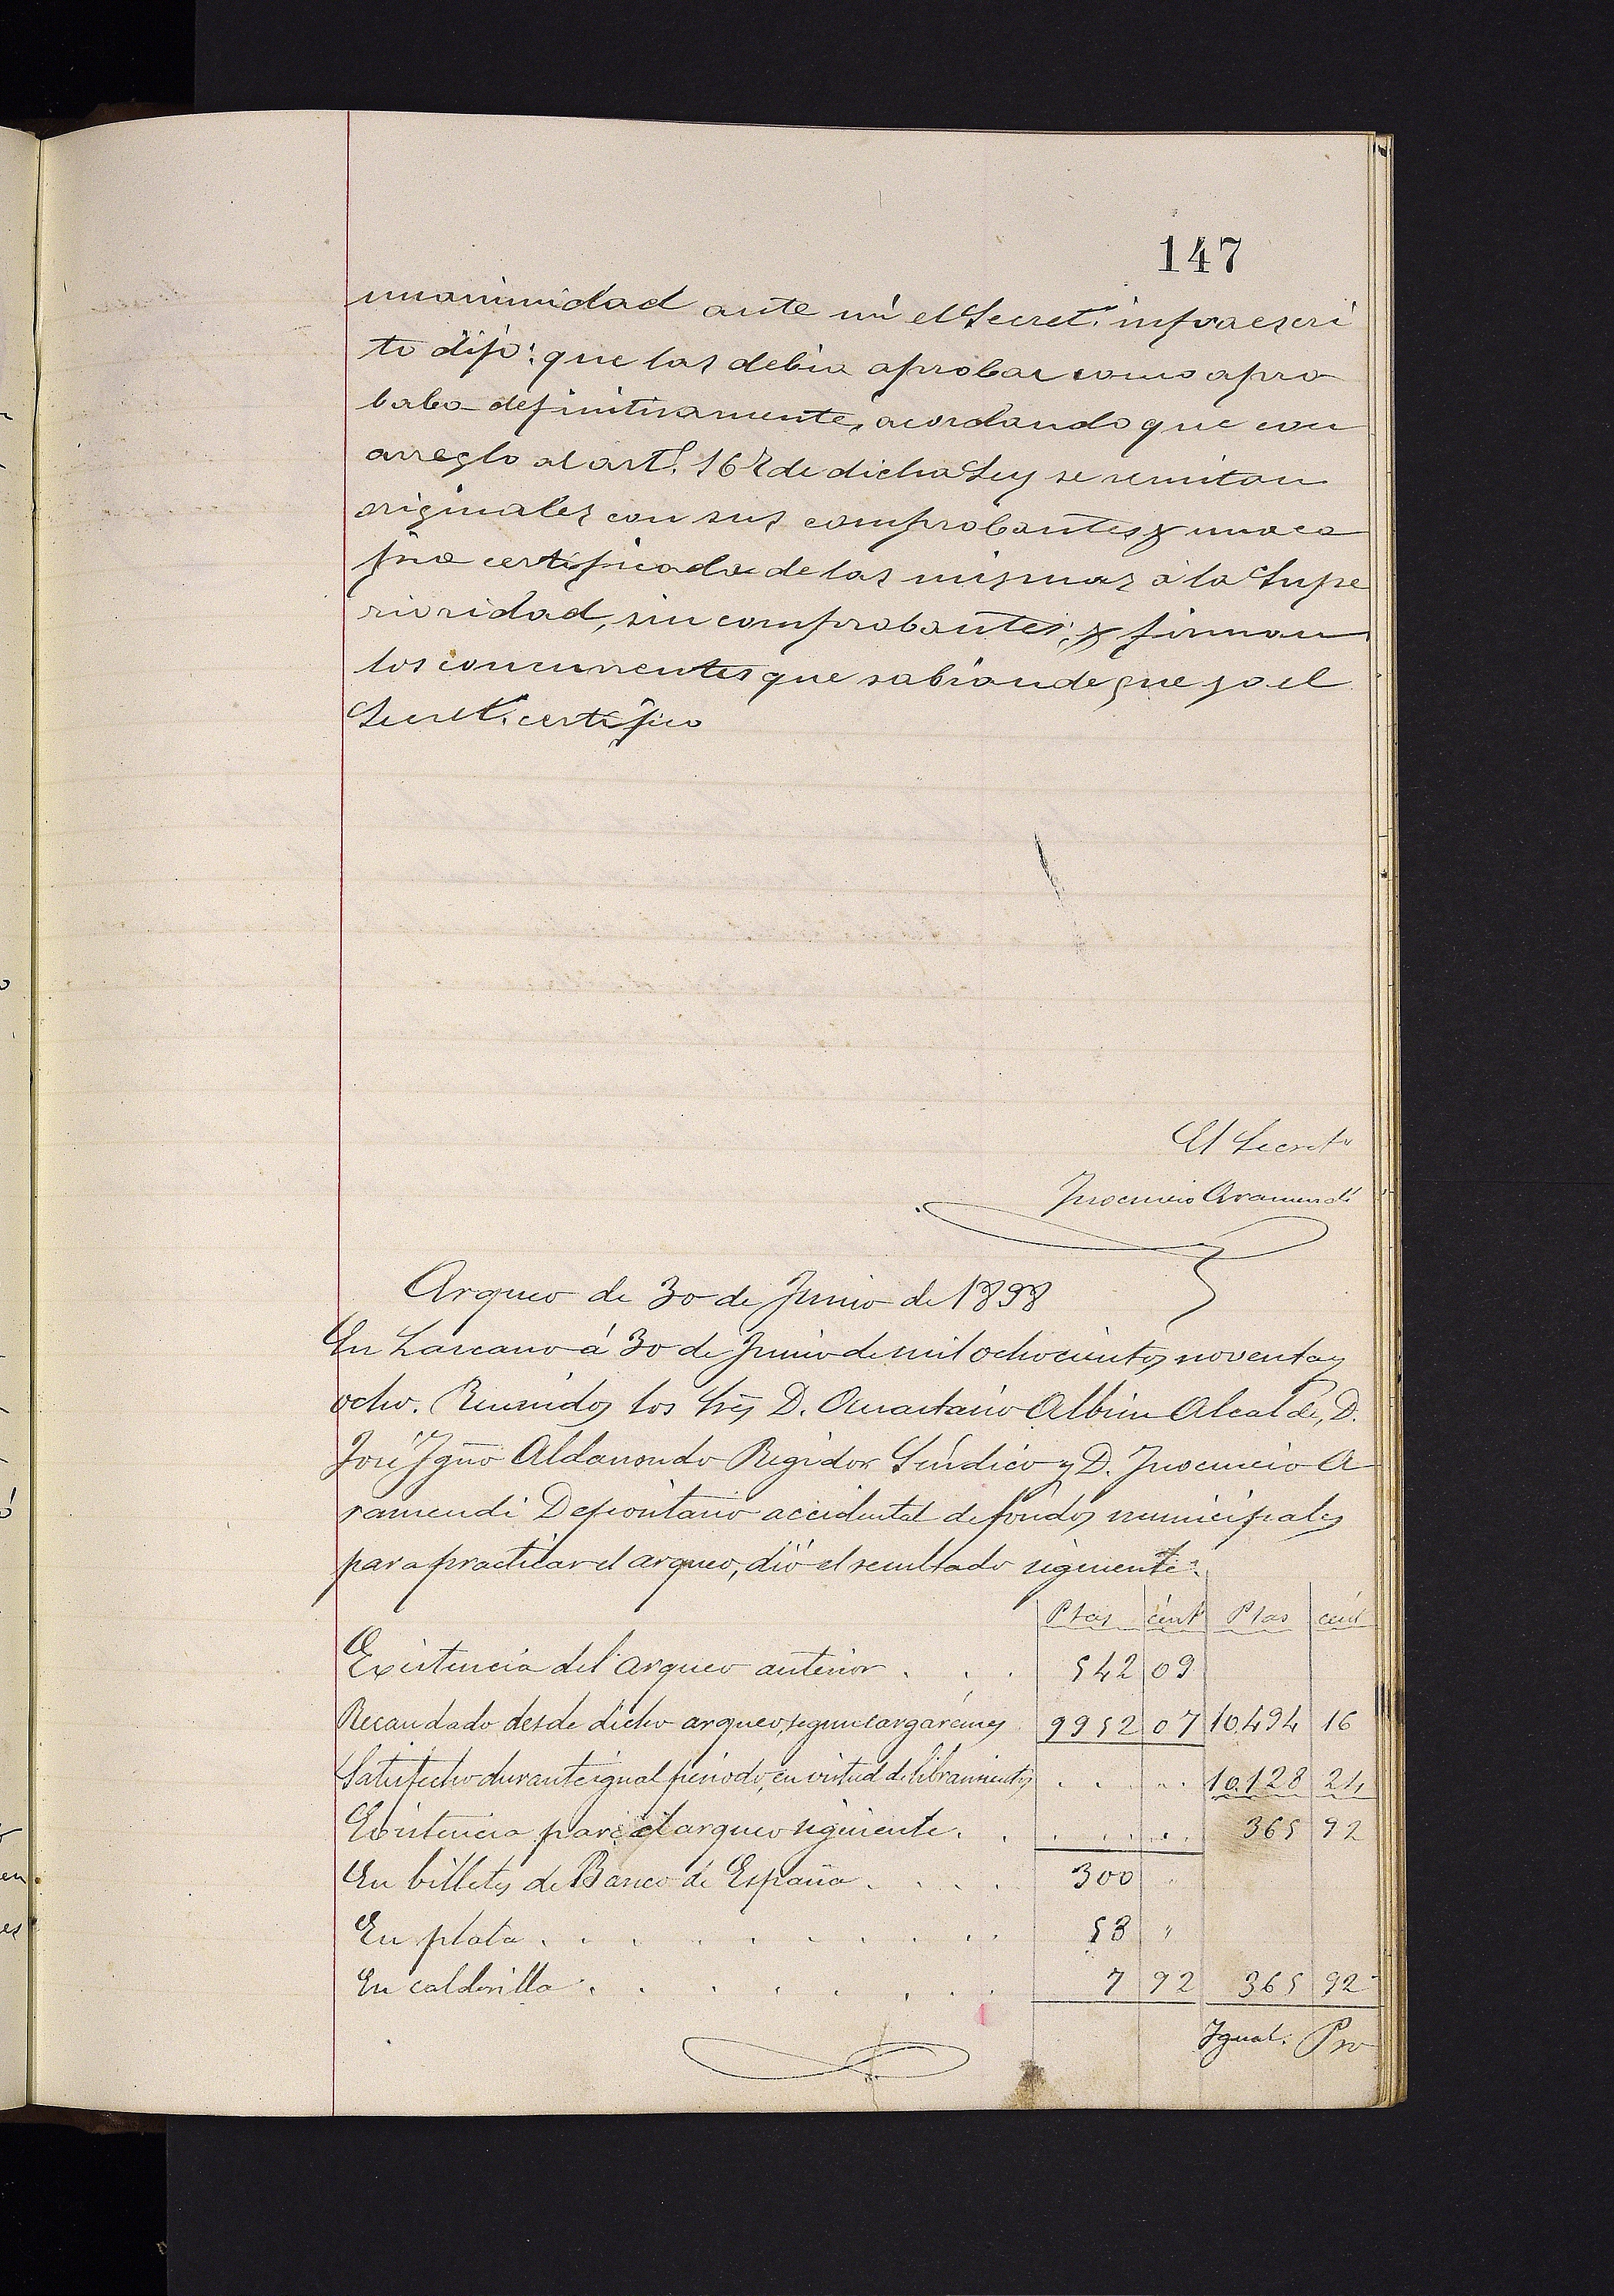 147
unanimidad ante mi el Secret.º infraescri
to dijo: que las debia aprobar como apro
baba definitivamente, acordando que con
arreglo al art.º 162 de dicha Ley se remitan
originales con sus comprobantes y una co
pia certificada de las mismas á la Supe
rioridad, sin comprobantes; y firman
los concurrentes que sabian de que yo el
Secret.º certifico
El Secret.º
Inocencio Aramendi
Arqueo de 30 de Junio de 1898
En Lazcano á 30 de Junio de mil ochocientos noventa y
ocho. Reunidos los Sres D. Anastasio Albin Alcalde, D.
José Igño Aldanondo Regidor Sindico y D. Inocencio A
ramendi Depositario accidental de fondos municipales
para practicar el arqueo, dió el resultado siguiente:
Ptas cént Ptas cént
Existencia del arqueo anterior . . . 542 09
Recaudado desde dicho arqueo, segun cargarémes 9952 07 10.494 16
Satisfecho durante igual periodo, en virtud de libramientos . . . . 10.128 24
Existencia para el arqueo siguiente . . . . . . 365 92
En billetes de Banco de España . . . . 300 "
En plata . . . . . . . . . 58 "
En calderilla . . . . . . . 7 92 365 92
Igual. Pro